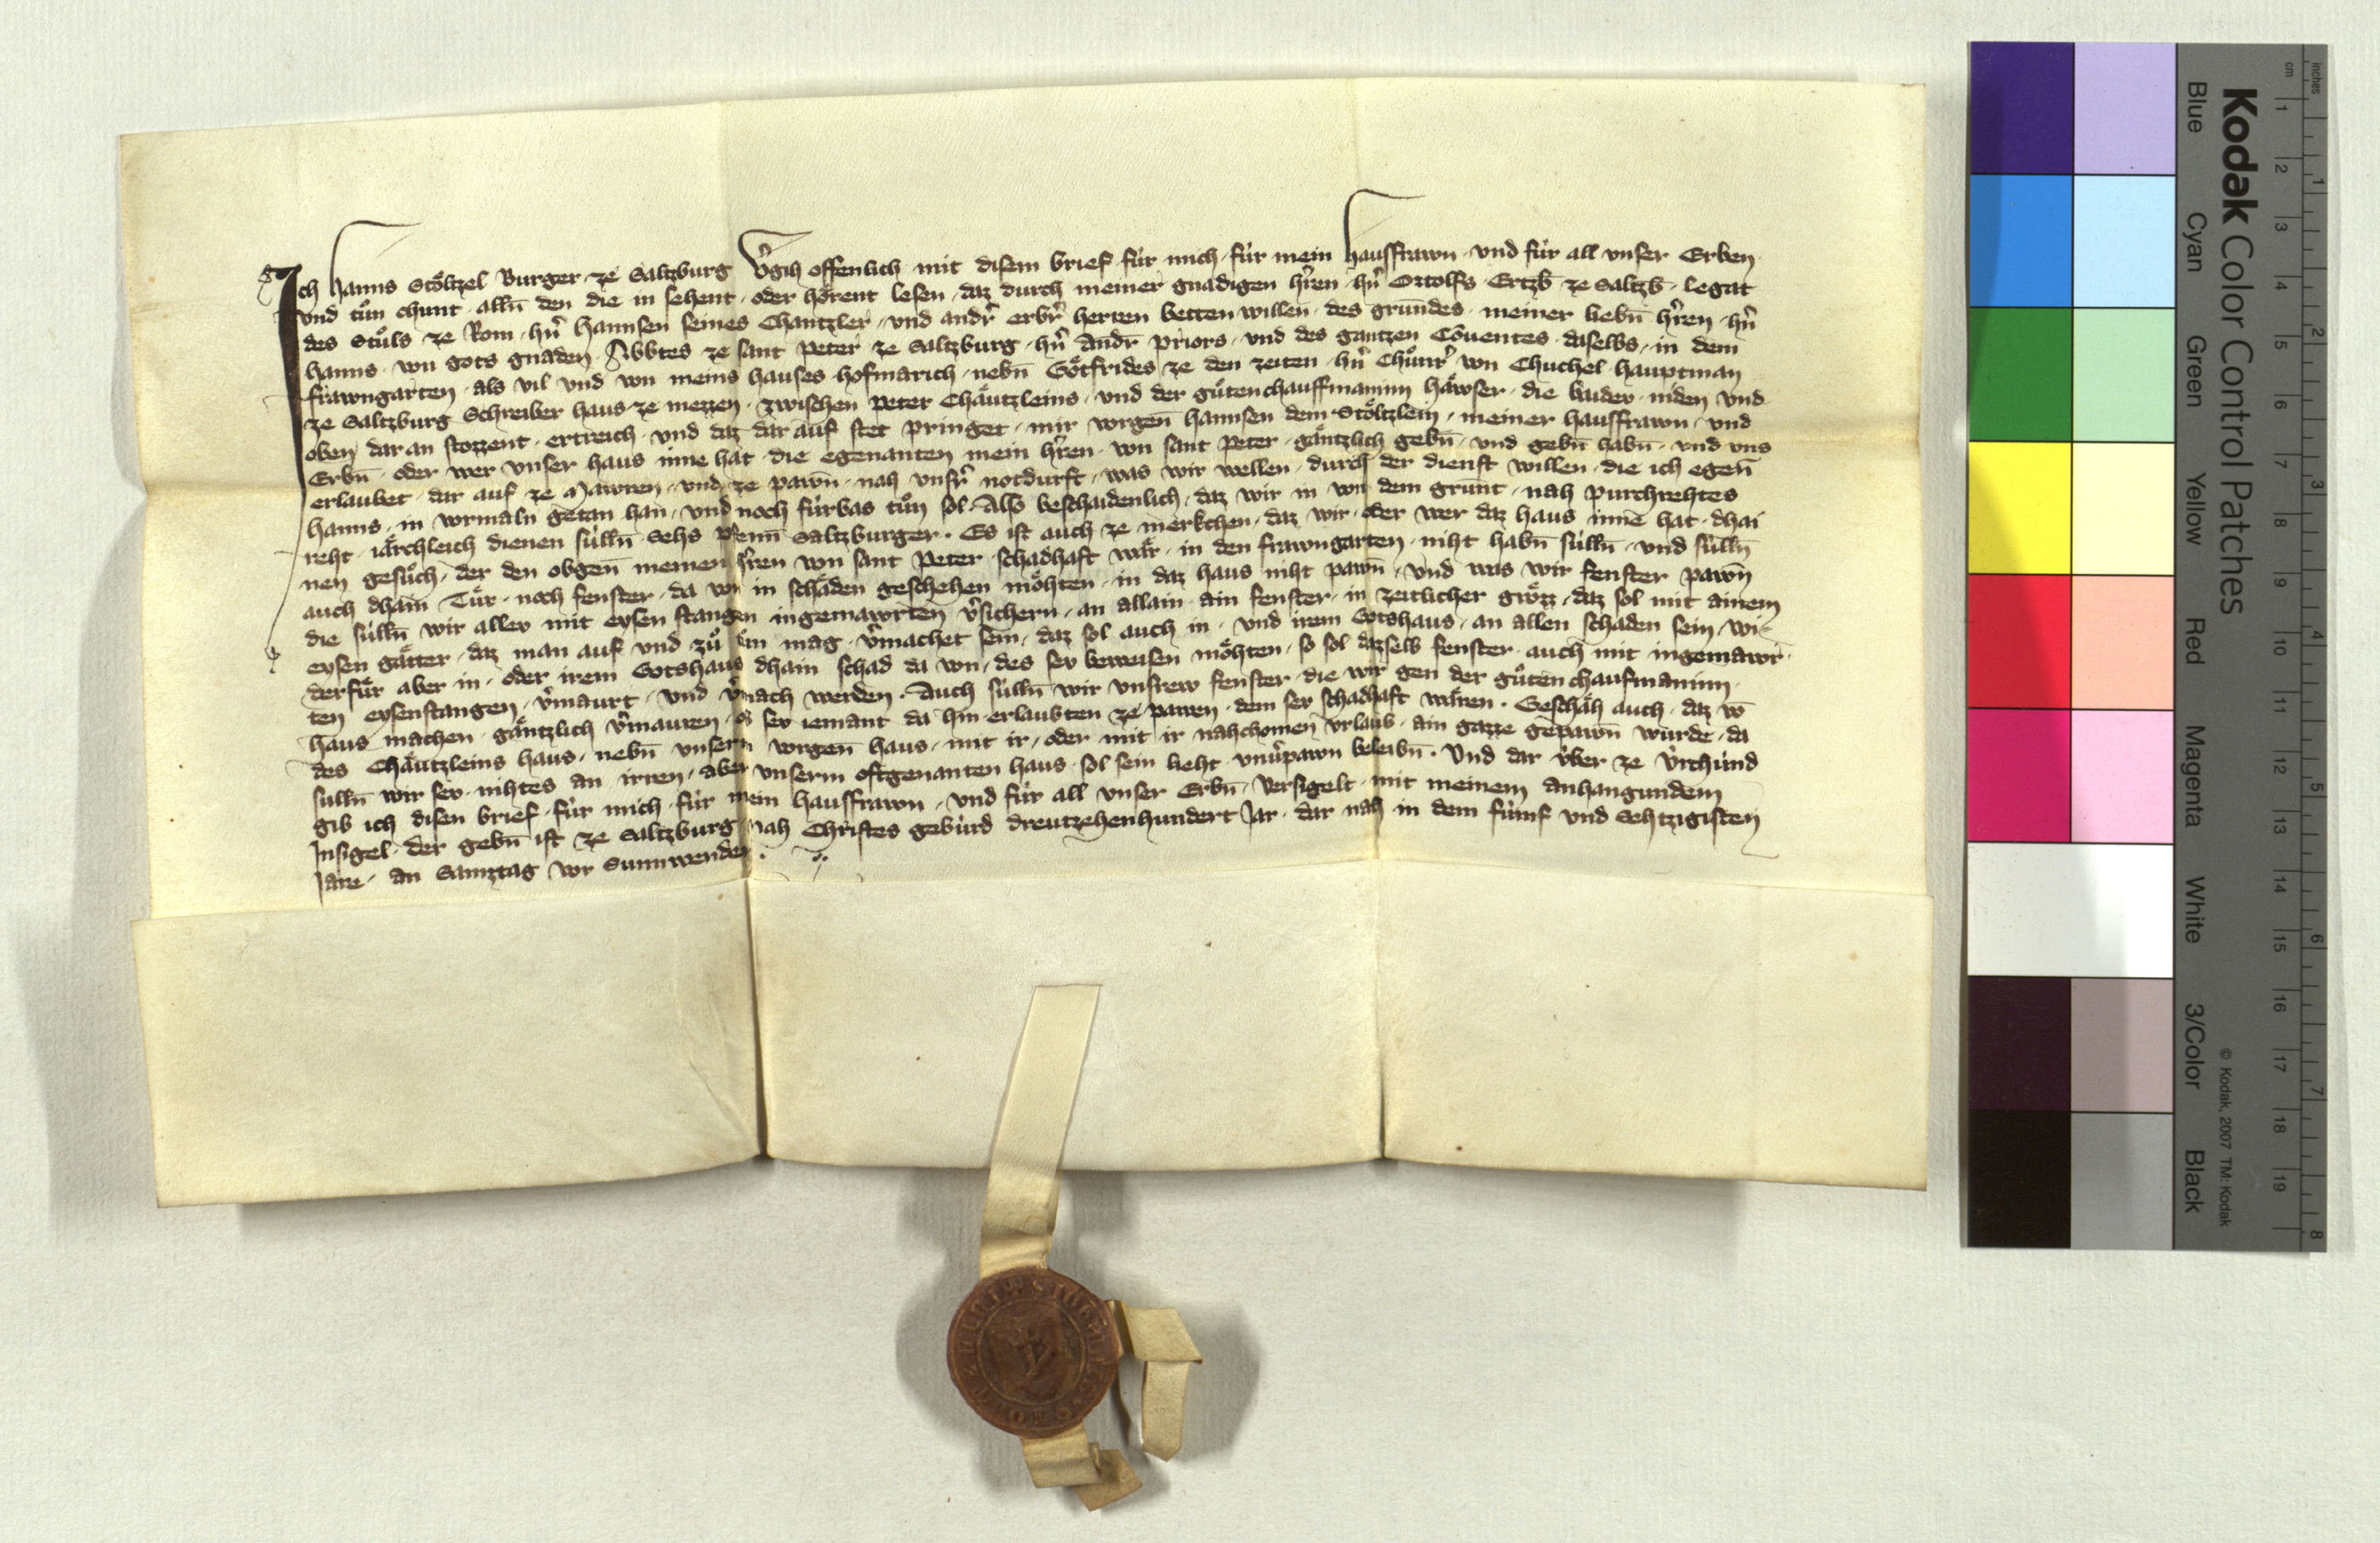 Ich Hanns Stoͤltzel Burger ze Saltzburg v̂gih offenlich mit disem brief fuͤr mich fuͤr mein Hausfrawn vnd fuͤr all vnser Erben
vnd tuͦn chunt alln̄ den die in sehent oder hoͤrent lesen daz durch meiner gnadigen hr̂ren hn̂ Ortolfs Ertzb̄ ze Saltzb̄ Legat
des Stuͦls ze Rom hn̂ Hannsen seines Chantzler vnd andr̂ erbr̂ herren betten willen des grundes meiner liebn̄ hr̂ren hn̂
Hanns von gots gnaden Abbtes ze sant Peter ze Saltzburg hn̂ Andr̄ Priors vnd des gantzen Cōuentes daselbs in dem
frawngarten als vil vnd von meins hauses hofmarich nebn̄ Goͤtfrides ze den zeiten hn̂ Chuͦnr̂ von Chuchel hauptman
ze Saltzburg Schreiber haus ze mezzen zwischen Peter Chaͤutzleins vnd der guͦten chauffmaninn haͤwser die baider niden vnd
oben dar an stozzent ertreich vnd daz dar auf stet pringet mir vorgen̄ Hannsen dem Stoͤltzlein meiner hausfrawn vnd
Erbn̄ oder wer vnser haus inne hat die egenanten mein hr̂ren von sant Peter gaͤntzlich gebn̄ vnd gebn̄ habn̄ vnd vns
erlaubet dar auf ze Mawren vnd ze pawn̄ nah vnsr̂ notdurft was wir wellen durch der dienst willen die ich egen̄
Hanns in vormaln getan han vnd noch fuͤrbas tuͦn sol Also beschaidenlich daz wir in von dem grunt nah purchrehtes
reht iaͤrchleich dienen suͤlln̄ Sehs Pfenn̄ Saltzburger Es ist auch ze merkchen daz wir oder wer daz haus inne hat dhai
nen gesuͦch der den obgen̄ meinen hr̂ren von sant Peter schadhaft waͤr in den frawngarten niht habn̄ suͤlln̄ vnd suͤlln̄
auch dhain Tuͤr noch fenster da von in schaͤden geschehen moͤhten in daz haus niht pawn̄ vnd was wir fenster pawn̄
die suͤlln̄ wir aller mit eysen stangen ingemawrten v̂sichern an allain ain fenster in zeitlicher groͤzz daz sol mit ainem
eysen gaͤtter daz man auf vnd zuͦ tuͦn mag v̂machet sein daz sol auch in vnd irem Gotshaus an allen schaden sein wi
derfuͤr aber in oder irem Gotshaus dhain schad da von des sev beweisen moͤhten so sol dazselb fenster auch mit ingemawr
ten eysenstangen v̂maurt vnd v̂mach werden Auch suͤlln̄ wir vnsrew fenster die wir gen der guͦten chaufmaninn
haus machen gaͤntzlich v̂mauren ob sev iemant da hin erlaubten ze pawen dem sev schadhaft waͤren Geschaͤh auch daz vō
des Chaͤutzleins haus nebn̄ vnserm vorgen̄ haus mit ir oder mit ir nahchomen vrlaub ain gazze gepawn̄ wurde da
suͤlln̄ wir sev nihtes an irren aber vnserm oftgenanten haus sol sein lieht vnuͤ̂pawn beleibn̄ Vnd dar uͤber ze v̂rchuͤnd
gib ich disen brief fuͤr mich fuͤr mein hausfrawn vnd fuͤr all vnser Erbn̄ Versigelt mit meinem anhangundem
Insigel der gebn̄ ist ze Saltzburg nah Christes gebuͤrd dreutzehenhundert Jar dar nah in dem fuͤmf vnd Sehtzigisten
Jare an Samztag vor Sunnwenden
Kodak Color Control Patches
Blue Cyan Green Yellow Red Magenta White 3/Color Black
© Kodak, 2007 TM: Kodak
inches 1 2 3 4 5 6 7 8
cm 1 2 3 4 5 6 7 8 9 10 11 12 13 14 15 16 17 18 19